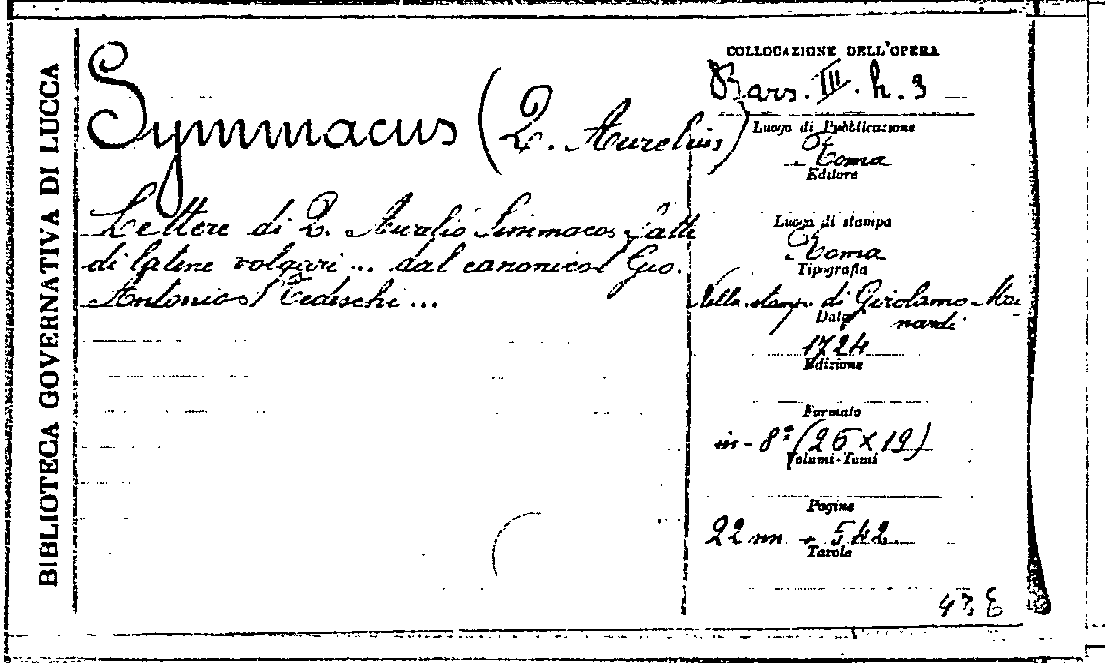 BIBLIOTECA GOVERNATIVA DI LUCCA
Symmacus (Q. Aurelius)
Lettere di Q. Aurelio Simmaco fatte
di latine volgari ... dal canonico Gio.
Antonio Tedeschi ...
COLLOCAZIONE DELL'OPERA
Bars. III. h. 3
Luogo di Pubblicazione
Roma
Editore
Luogo di stampa
Roma
Tipografia
Nella stamp. di Girolamo Mai-
nardi
Data
1724
Edizione
Formato
in-8° (26 x 19)
Volumi-Tomi
Pagine
22 nn + 542
Tavole